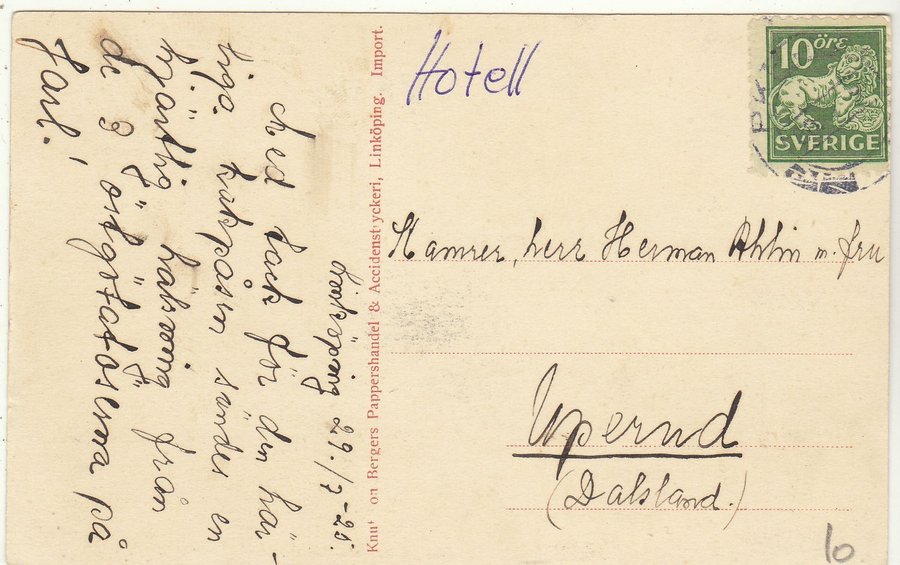 Linköping 29./7-25.
Med tack för den här-
liga kikpåsen sändes en
hjärtlig hälsning från
de 3 östgötatöserna på
Jarl.
Knut on Bergers Pappershandel & Accidenstryckeri, Linköping. Import.
Hotell
10 ÖRE
SVERIGE
Kamrer, herr Herman Ahlin m. fru
Upernd
(Dalsland.)
10